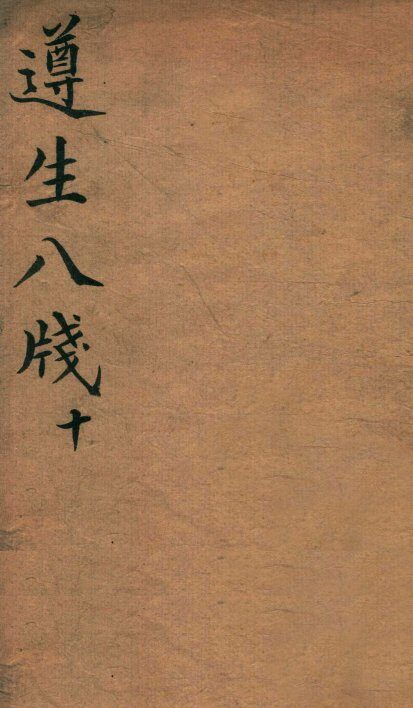 遵生八牋十